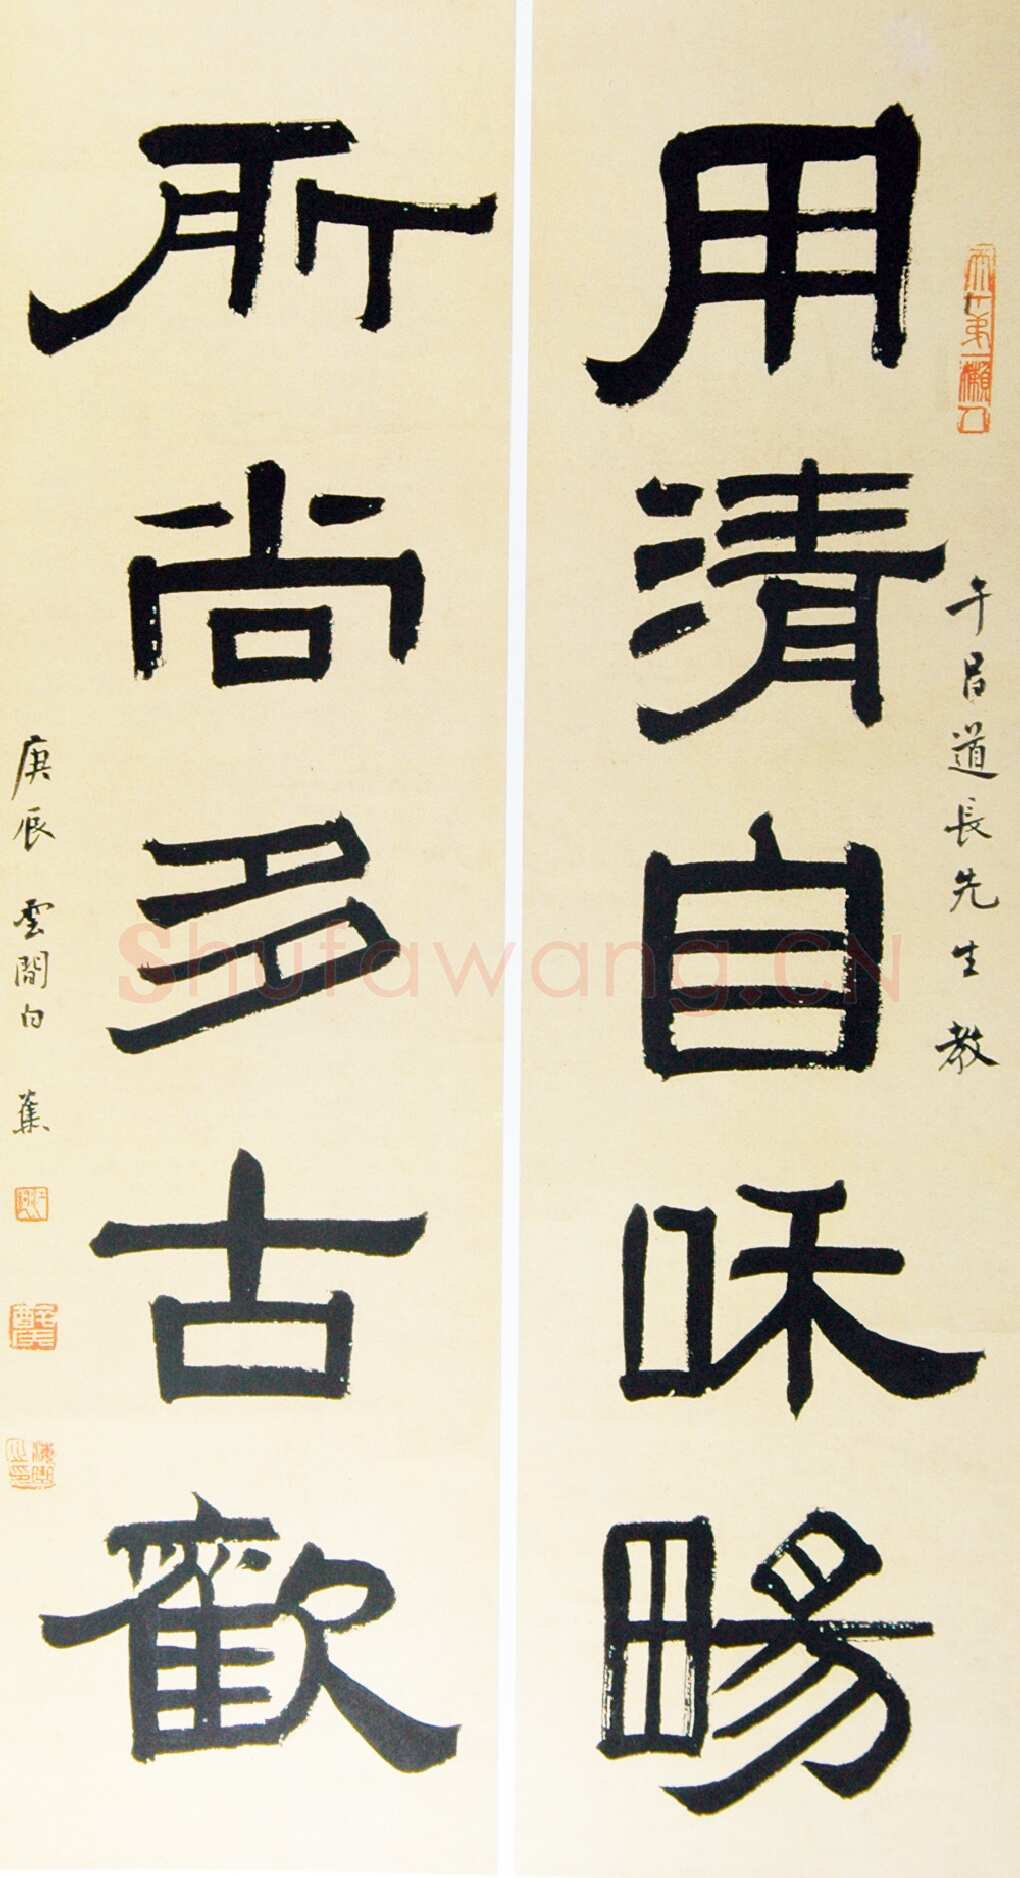 用清自咊畼
午昌道長先生教
所尚多古歡
庚辰 雲間白蕉
Shufawang.CN